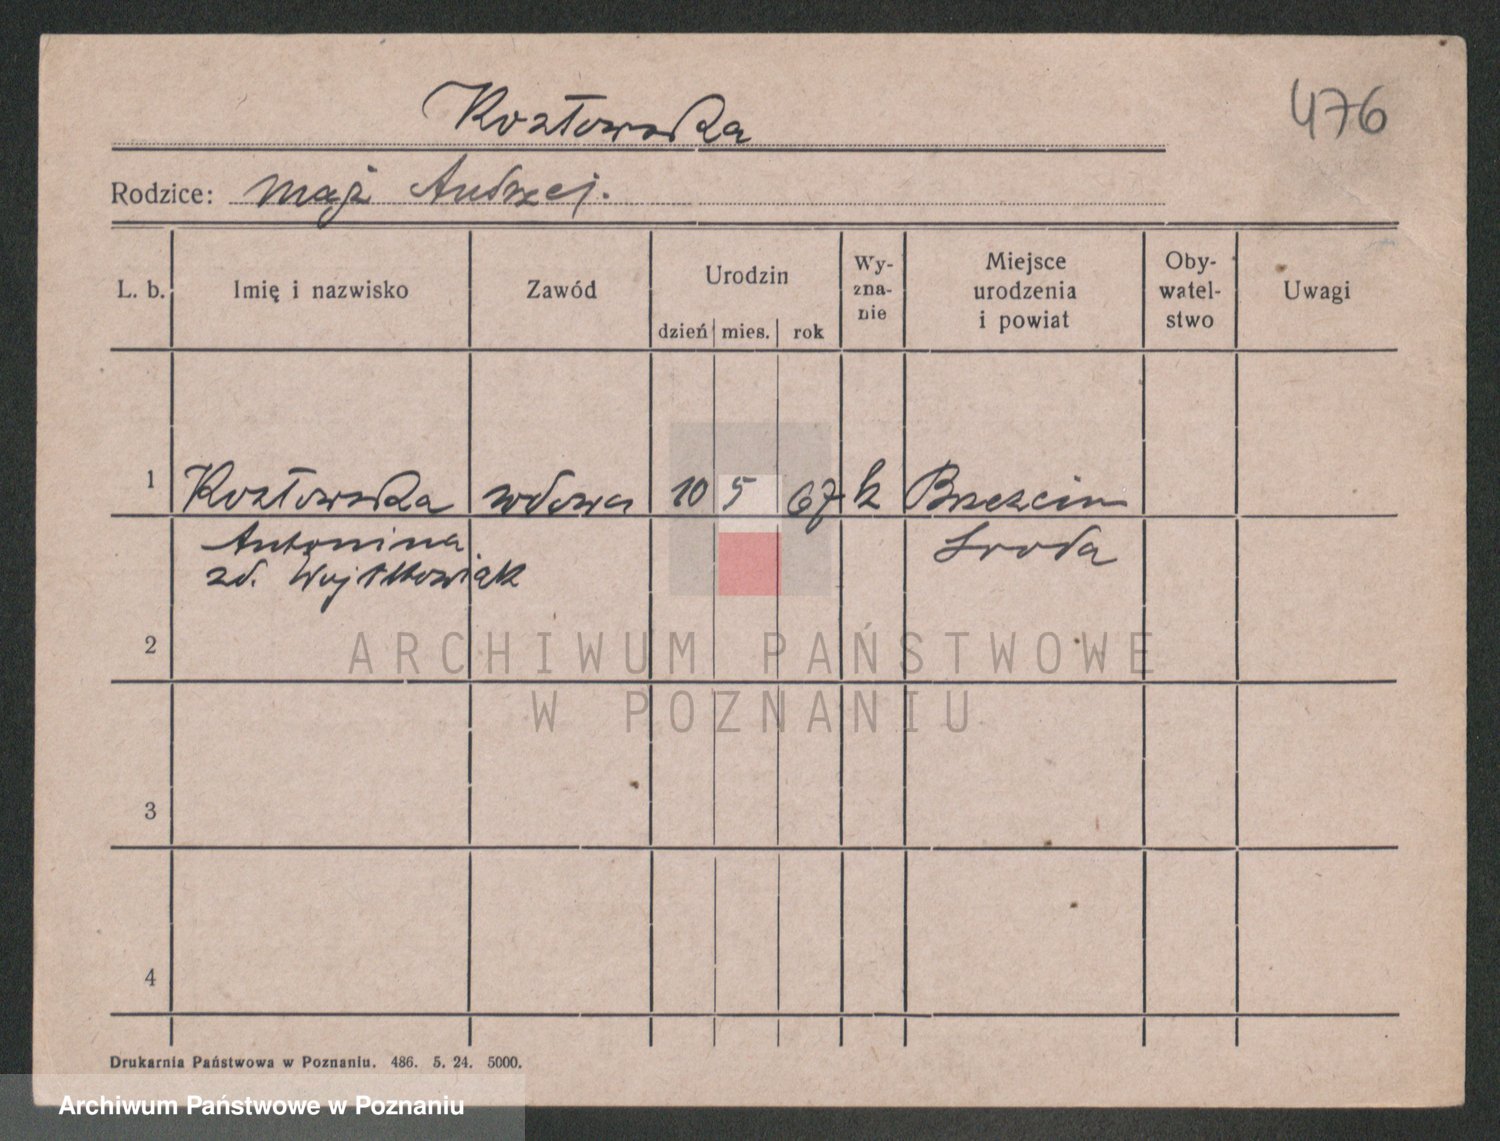 Kozłowska
476
Rodzice: mąż Andrzej.
L. b. Imię i nazwisko Zawód Urodzin dzień mies. rok Wy-zna-nie Miejsce urodzenia i powiat Oby-watel-stwo Uwagi
1 Kozłowska wdowa 10 5 67 k
Antonina Sroda
zd.
2
ARCHIWUM PAŃSTWOWE
W POZNANIU
3
4
Drukarnia Państwowa w Poznaniu. 486. 5. 24. 5000.
Archiwum Państwowe w Poznaniu